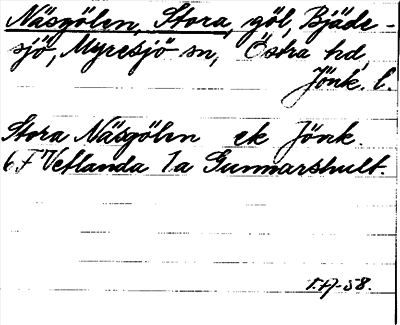 Näsgölen, Stora, göl, Bjäde-
sjö, Myresjö sn, Östra hd,
Jönk. l.
Stora Näsgölen ek Jönk.
6F Vetlanda 1a Gunnarshult.